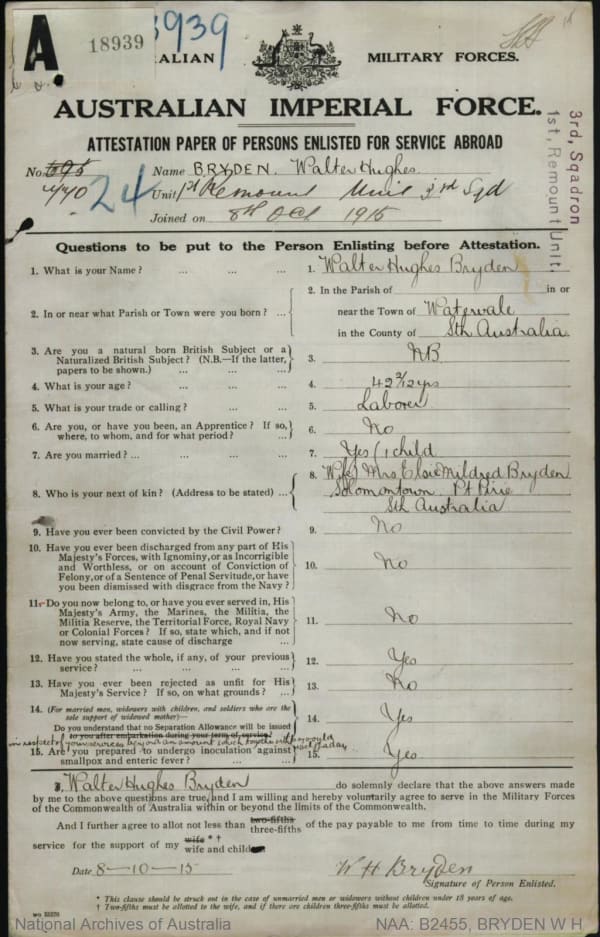 A
18939
3939
AUSTRALIAN MILITARY FORCES.
AUSTRALIAN IMPERIAL FORCE.
ATTESTATION PAPER OF PERSONS ENLISTED FOR SERVICE ABROAD
3rd, Sqadron
1st, Remount Unit.
No. 695 Name BRYDEN. Walter Hughes.
24 Unit 1st Remount Unit 3rd Sqd
Joined on 8th Oct 1915
Questions to be put to the Person Enlisting before Attestation.
1. What is your Name? ... ... ... 1. Walter Hughes Bryden
2. In or near what Parish or Town were you born? ... 2. In the Parish of in or
near the Town of Watervale
in the County of Sth Australia
3. Are you a natural born British Subject or a
Naturalized British Subject? (N.B.—If the latter,
papers to be shown.) ... ... ... 3. NB
4. What is your age? ... ... ... 4. 42 2/12 yrs
5. What is your trade or calling? ... ... 5. Laborer
6. Are you, or have you been, an Apprentice? If so,
where, to whom, and for what period? ... 6. No
7. Are you married? ... ... ... ... 7. Yes (1 child
8. Who is your next of kin? (Address to be stated) ... 8. Wife) Mrs Elsie Mildred Bryden
Solomontown Pt Pirie
Sth Australia
9. Have you ever been convicted by the Civil Power? 9. No
10. Have you ever been discharged from any part of His
Majesty's Forces, with Ignominy, or as Incorrigible
and Worthless, or on account of Conviction of
Felony, or of a Sentence of Penal Servitude, or have
you been dismissed with disgrace from the Navy? 10. No
11. Do you now belong to, or have you ever served in, His
Majesty's Army, the Marines, the Militia, the
Militia Reserve, the Territorial Force, Royal Navy
or Colonial Forces? If so, state which, and if not
now serving, state cause of discharge ... 11. No
12. Have you stated the whole, if any, of your previous
service? ... ... ... ... 12. Yes
13. Have you ever been rejected as unfit for His
Majesty's Service? If so, on what grounds? ... 13. No
14. (For married men, widowers with children, and soldiers who are the
sole support of widowed mother)—
Do you understand that no Separation Allowance will be issued 14. Yes
to you after embarkation during your term of service?
in respect of your services beyond an amount which together with pay would
15. Are you prepared to undergo inoculation against
smallpox and enteric fever? ... ... 15. Yes
I, Walter Hughes Bryden do solemnly declare that the above answers made
by me to the above questions are true, and I am willing and hereby voluntarily agree to serve in the Military Forces
of the Commonwealth of Australia within or beyond the limits of the Commonwealth.
And I further agree to allot not less than two-fifths
three-fifths of the pay payable to me from time to time during my
service for the support of my wife * †
wife and child
Date 8-10-15 W H Bryden
Signature of Person Enlisted.
* This clause should be struck out in the case of unmarried men or widowers without children under 18 years of age.
† Two-fifths must be allotted to the wife, and if there are children three-fifths must be allotted.
National Archives of Australia NAA: B2455, BRYDEN W H